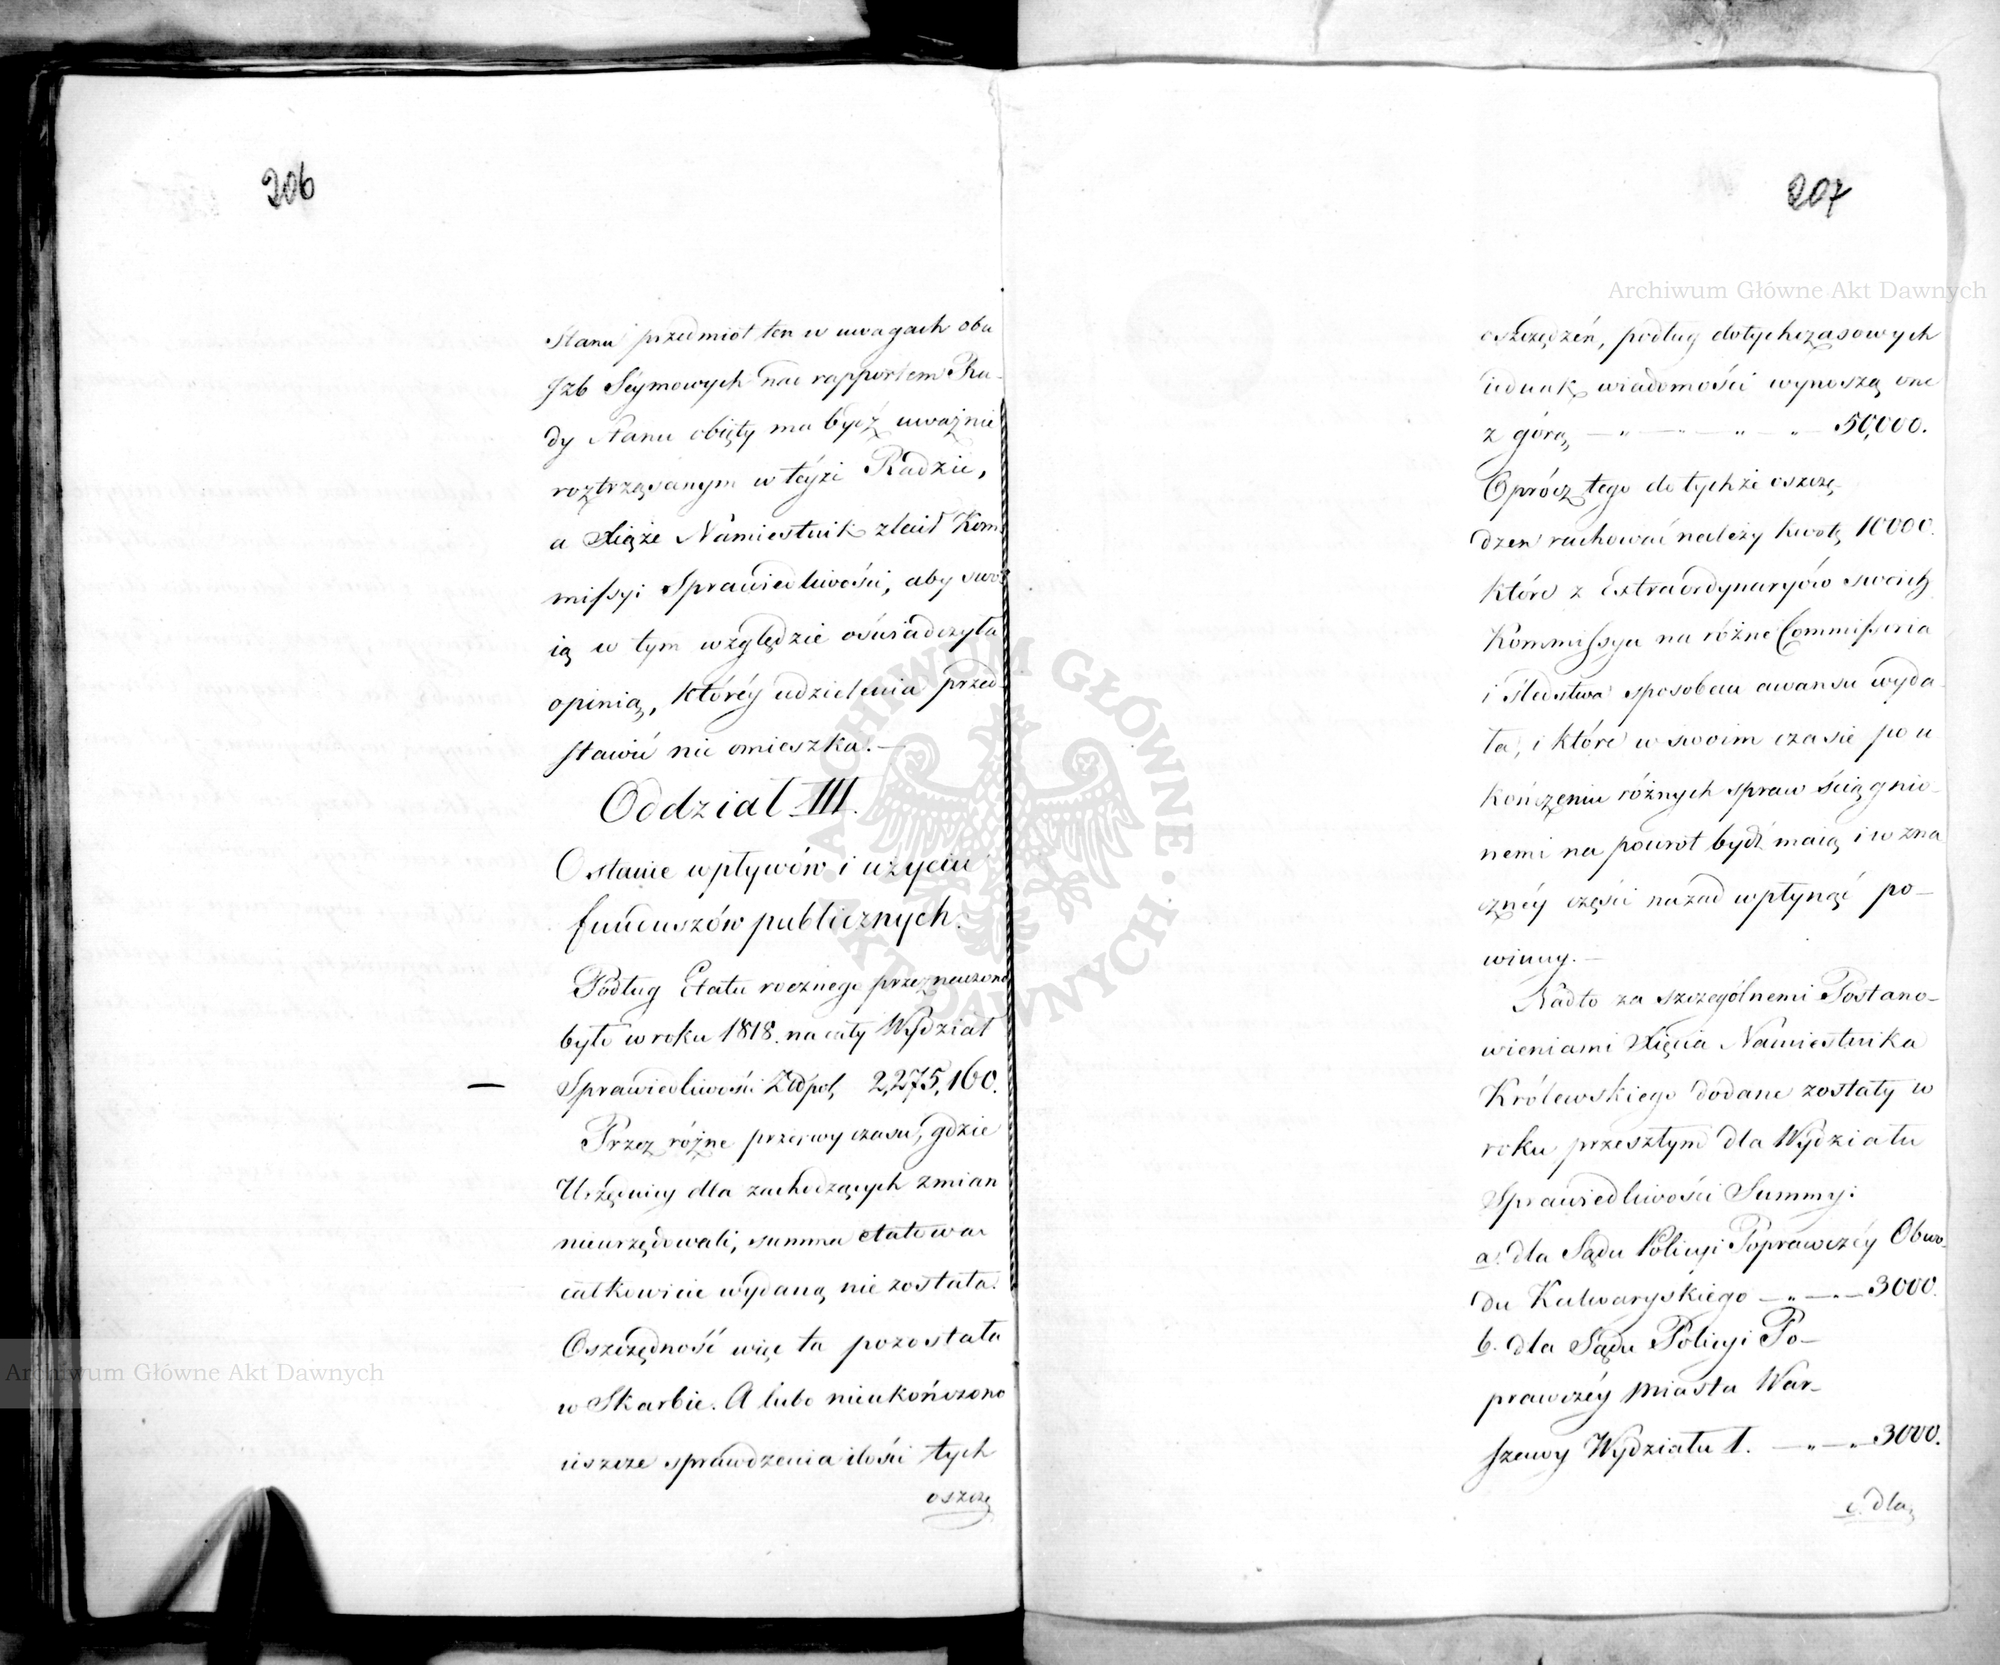 206
Stanu przedmiot ten w uwagach obu
Jzb Seymowych nad rapportem Ra-
dy Stanu obięty ma bydź uważnie
roztrząsanym w teyże Radzie,
a Xiąże Namiestnik zlecił Kom-
missyi Sprawiedliwości, aby swo-
ią w tym względzie oświadczyła
opinią, któréy udzielenia przed-
stawić nie omieszka. —
Oddział III.
O stanie wpływów i użyciu
funduszów publicznych.
Podług Etatu rocznego przeznaczono
było w roku 1818. na cały Wydział
— Sprawiedliwości Złłpol, 2,275,160.
Przez różne przerwy czasu, gdzie
Urzędnicy dla zachodzących zmian
nieurzędowali, summa etatowa
całkowicie wydaną nie została.
Oszczędność więc ta pozostała
w Skarbie. A lubo nieukończono
ieszcze sprawdzenia ilości tych
oszczę
207
oszczędzeń, podług dotychczasowych
iednak wiadomości wynoszą one
z górą — „ — „ — „ — „ — 50,000.
Oprócz tego do tychże oszczę-
dzeń rachować należy kwotę 10000.
które z Extraordynaryów swoich
Kommissya na różne Commissoria
i śledztwa sposobem awansu wyda-
ła, i które w swoim czasie po u
kończeniu różnych spraw ściągnio-
nemi na powrot bydź maią i w zna
cznéy części nazad wpłynąć po-
winny. —
Nadto za szczególnemi Postano-
wieniami Xięcia Namiestnika
Królewskiego dodane zostały w
roku przeszłym dla Wydziału
Sprawiedliwości Summy:
a. dla Sądu Policyi Poprawczéy Obwo-
du Kalwaryskiego — „ — „ — 3000.
b. dla Sądu Policyi Po-
prawczéy Miasta War-
szawy Wydziału I. — „ — „ 3000.
c. dla
Archiwum Główne Akt Dawnych
Archiwum Główne Akt Dawnych
ARCHIWUM GŁÓWNE AKT DAWNYCH